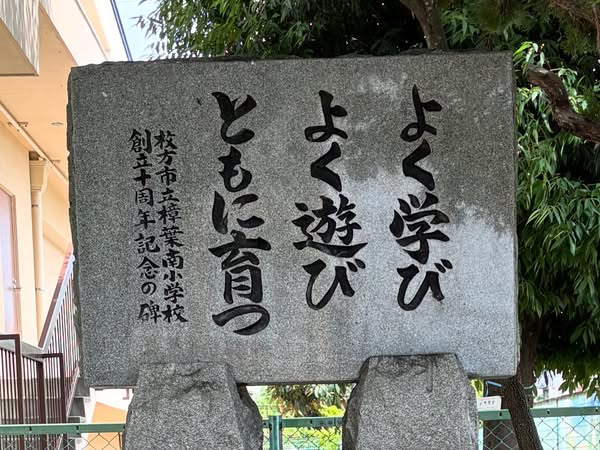 よく学び
よく遊び
ともに育つ
枚方市立樟葉南小学校
創立十周年記念の碑